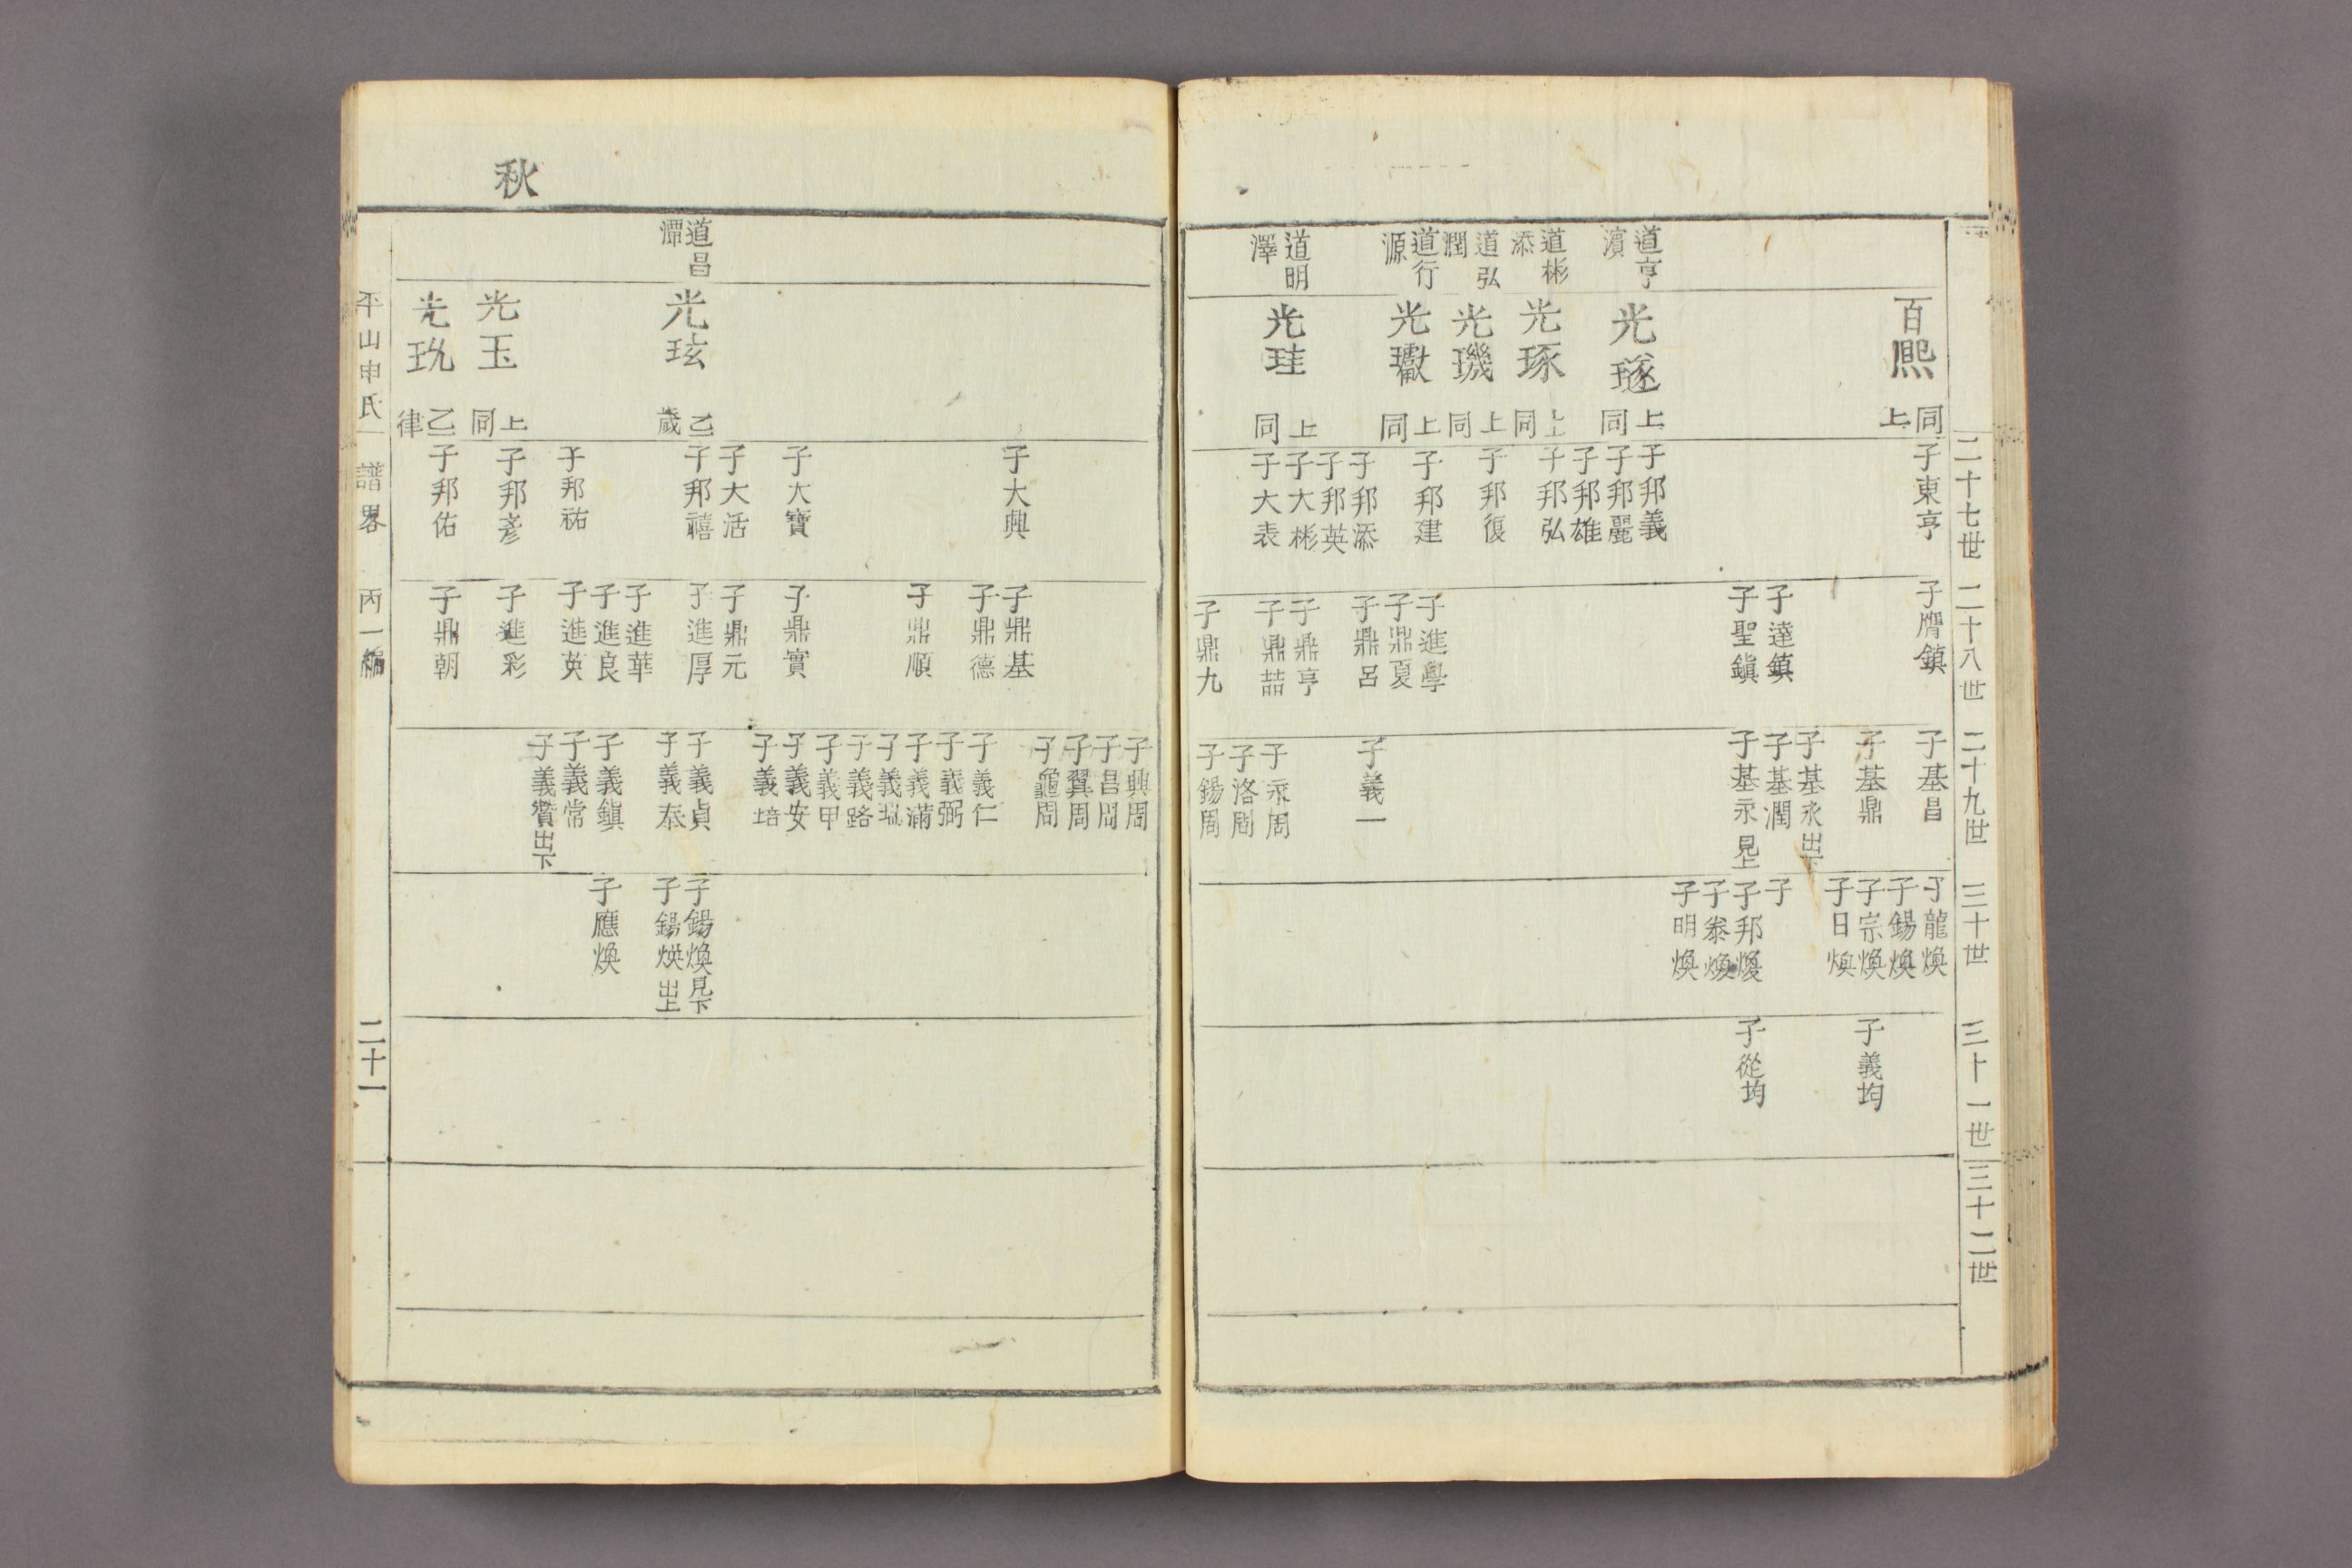 二十七世
二十八世
二十九世
三十世
三十一世
三十二世
百熙
同上
子東亨
子膺鎮
子基昌
子龍煥
子錫煥
子基鼎
子宗煥
子義均
子日煥
子基永出下
子達鎮
子基潤
子
子聖鎭
子基永見上
子邦煥
子從均
子泰煥
子明煥
道亨
濱
光璲
上同
子邦義
子邦麗
子邦雄
道彬
添
光琢
上同
子邦弘
道弘
潤
光璣
上同
子邦復
道行
源
光瓛
上同
子邦建
子進學
子鼎夏
子邦添
子鼎呂
子義一
子邦英
道明
澤
光珪
上同
子大彬
子鼎亨
子大表
子鼎喆
子汞周
子洛周
子鼎九
子錫周
子興周
子昌周
子翼周
子龜周
子大興
子鼎基
子鼎德
子義仁
子義弼
子鼎順
子義滿
子義瑞
子義路
子義甲
子大寶
子鼎實
子義安
子義培
子大活
子鼎元
道昌
潭
光玹
乙歲
子邦禧
子進厚
子義貞
子錫煥見下
子義奉
子錫煥出上
子進華
子進良
子義鎭
子應煥
子邦祐
子進英
子義常
子義贊出下
秋
光玉
上同
子邦彥
子進彩
光玧
乙律
子邦佑
子鼎朝
平山申氏譜畧 丙一編 二十一